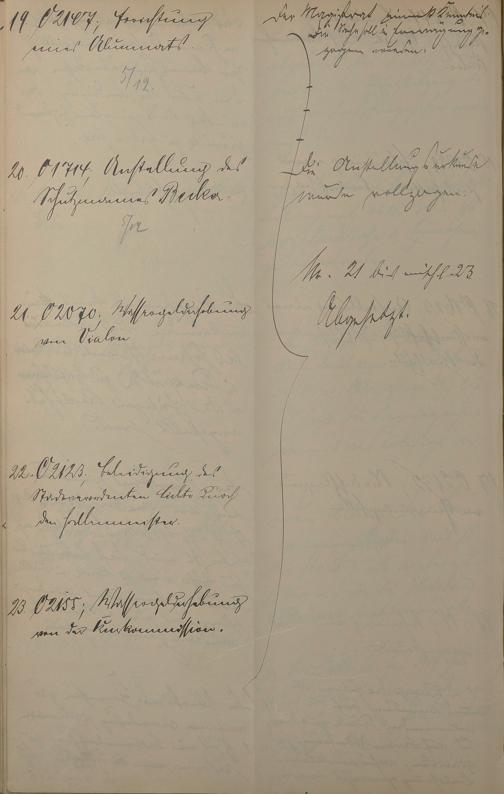 19. O2147; Errichtung
eines Alumnats.
5/12.
20. O1714; Anstellung des
Schutzmannes Becker.
5/12
21. O2070; Wassergelderhebung
von Vialon
22. O2123; Beleidigung des
Stadtverordneten durch
den Hallenmeister.
23. O2155; Wassergelderhebung
von der Kurkommission.
Der Magistrat nimmt Kenntnis
Die Sache soll in Erwägung ge-
zogen werden.
Die Anstellungsurkunde
wurde vollzogen.
Nr. 21 bis mit 23
Abgesetzt.